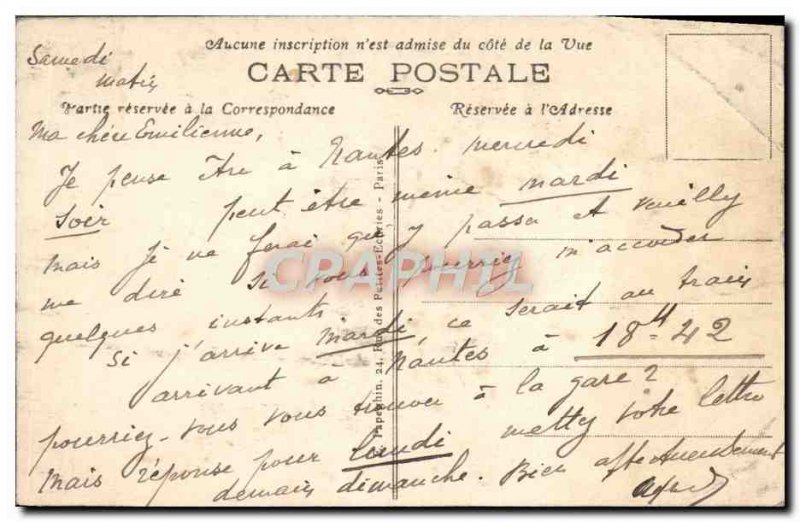 Aucune inscription n'est admise du côté de la Vue
CARTE POSTALE
Partie réservée à la Correspondance
Réservée à l'Adresse
Samedi
matin
Ma chère Emilienne,
Je pense être à Nantes mercredi
soir peut être même mardi
mais je ne ferai que y passer et veuilly
me dire si vous pourriez m'accorder
quelques instants
si j'arrive mardi ce serait au train
arrivant à Nantes à 18h 42
pourriez-vous vous trouver à la gare?
Mais réponse pour lundi metty votre lettre
demain dimanche. Bien affectueusement
Papeghin, 24, Rue des Petites-Ecuries - Paris
CPAPHIL